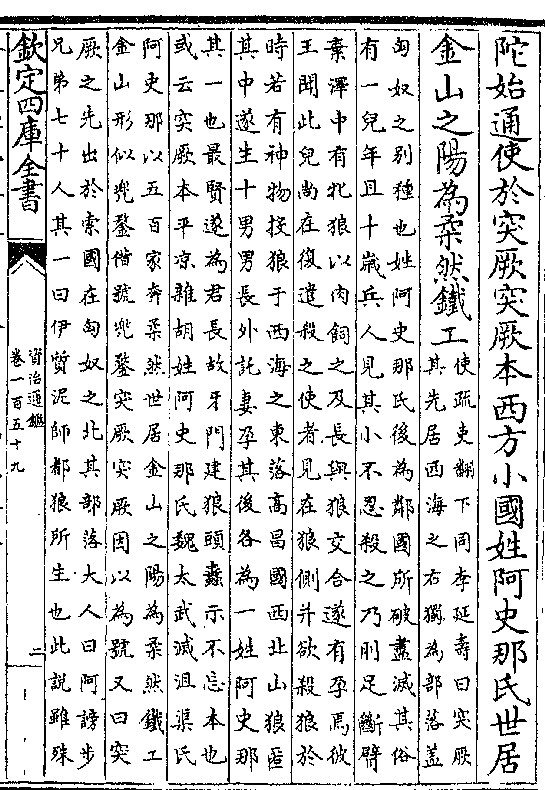 陀始通使於突厥突厥本西方小國姓阿史那氏世居
金山之陽為柔然鐵工
使疏吏翻下同李延壽曰突厥
其先居西海之右獨為部落蓋
匈奴之别種也姓阿史那氏後為鄰國所破盡滅其俗
有一兒年且十歲兵人見其小不忍殺之乃刖足斷臂
棄澤中有牝狼以肉飼之及長與狼交合遂有孕焉彼
王聞此兒尚在復遣殺之使者見在狼側并欲殺狼於
時若有神物投狼于西海之東落高昌國西北山狼匿
其中遂生十男男長外託妻孕其後各為一姓阿史那
其一也最賢遂為君長故牙門建狼頭纛示不忘本也
或云突厥本平凉雜胡姓阿史那氏魏太武滅沮渠氏
阿史那以五百家奔柔然世居金山之陽為柔然鐵工
金山形似兜鍪俗號兜鍪突厥突厥因以為號又曰突
厥之先出於索國在匈奴之北其部落大人曰阿謗步
兄弟七十人其一曰伊質泥師都狼所生也此說雖殊
欽定四庫全書
資治通鑑
卷一百五十九
二